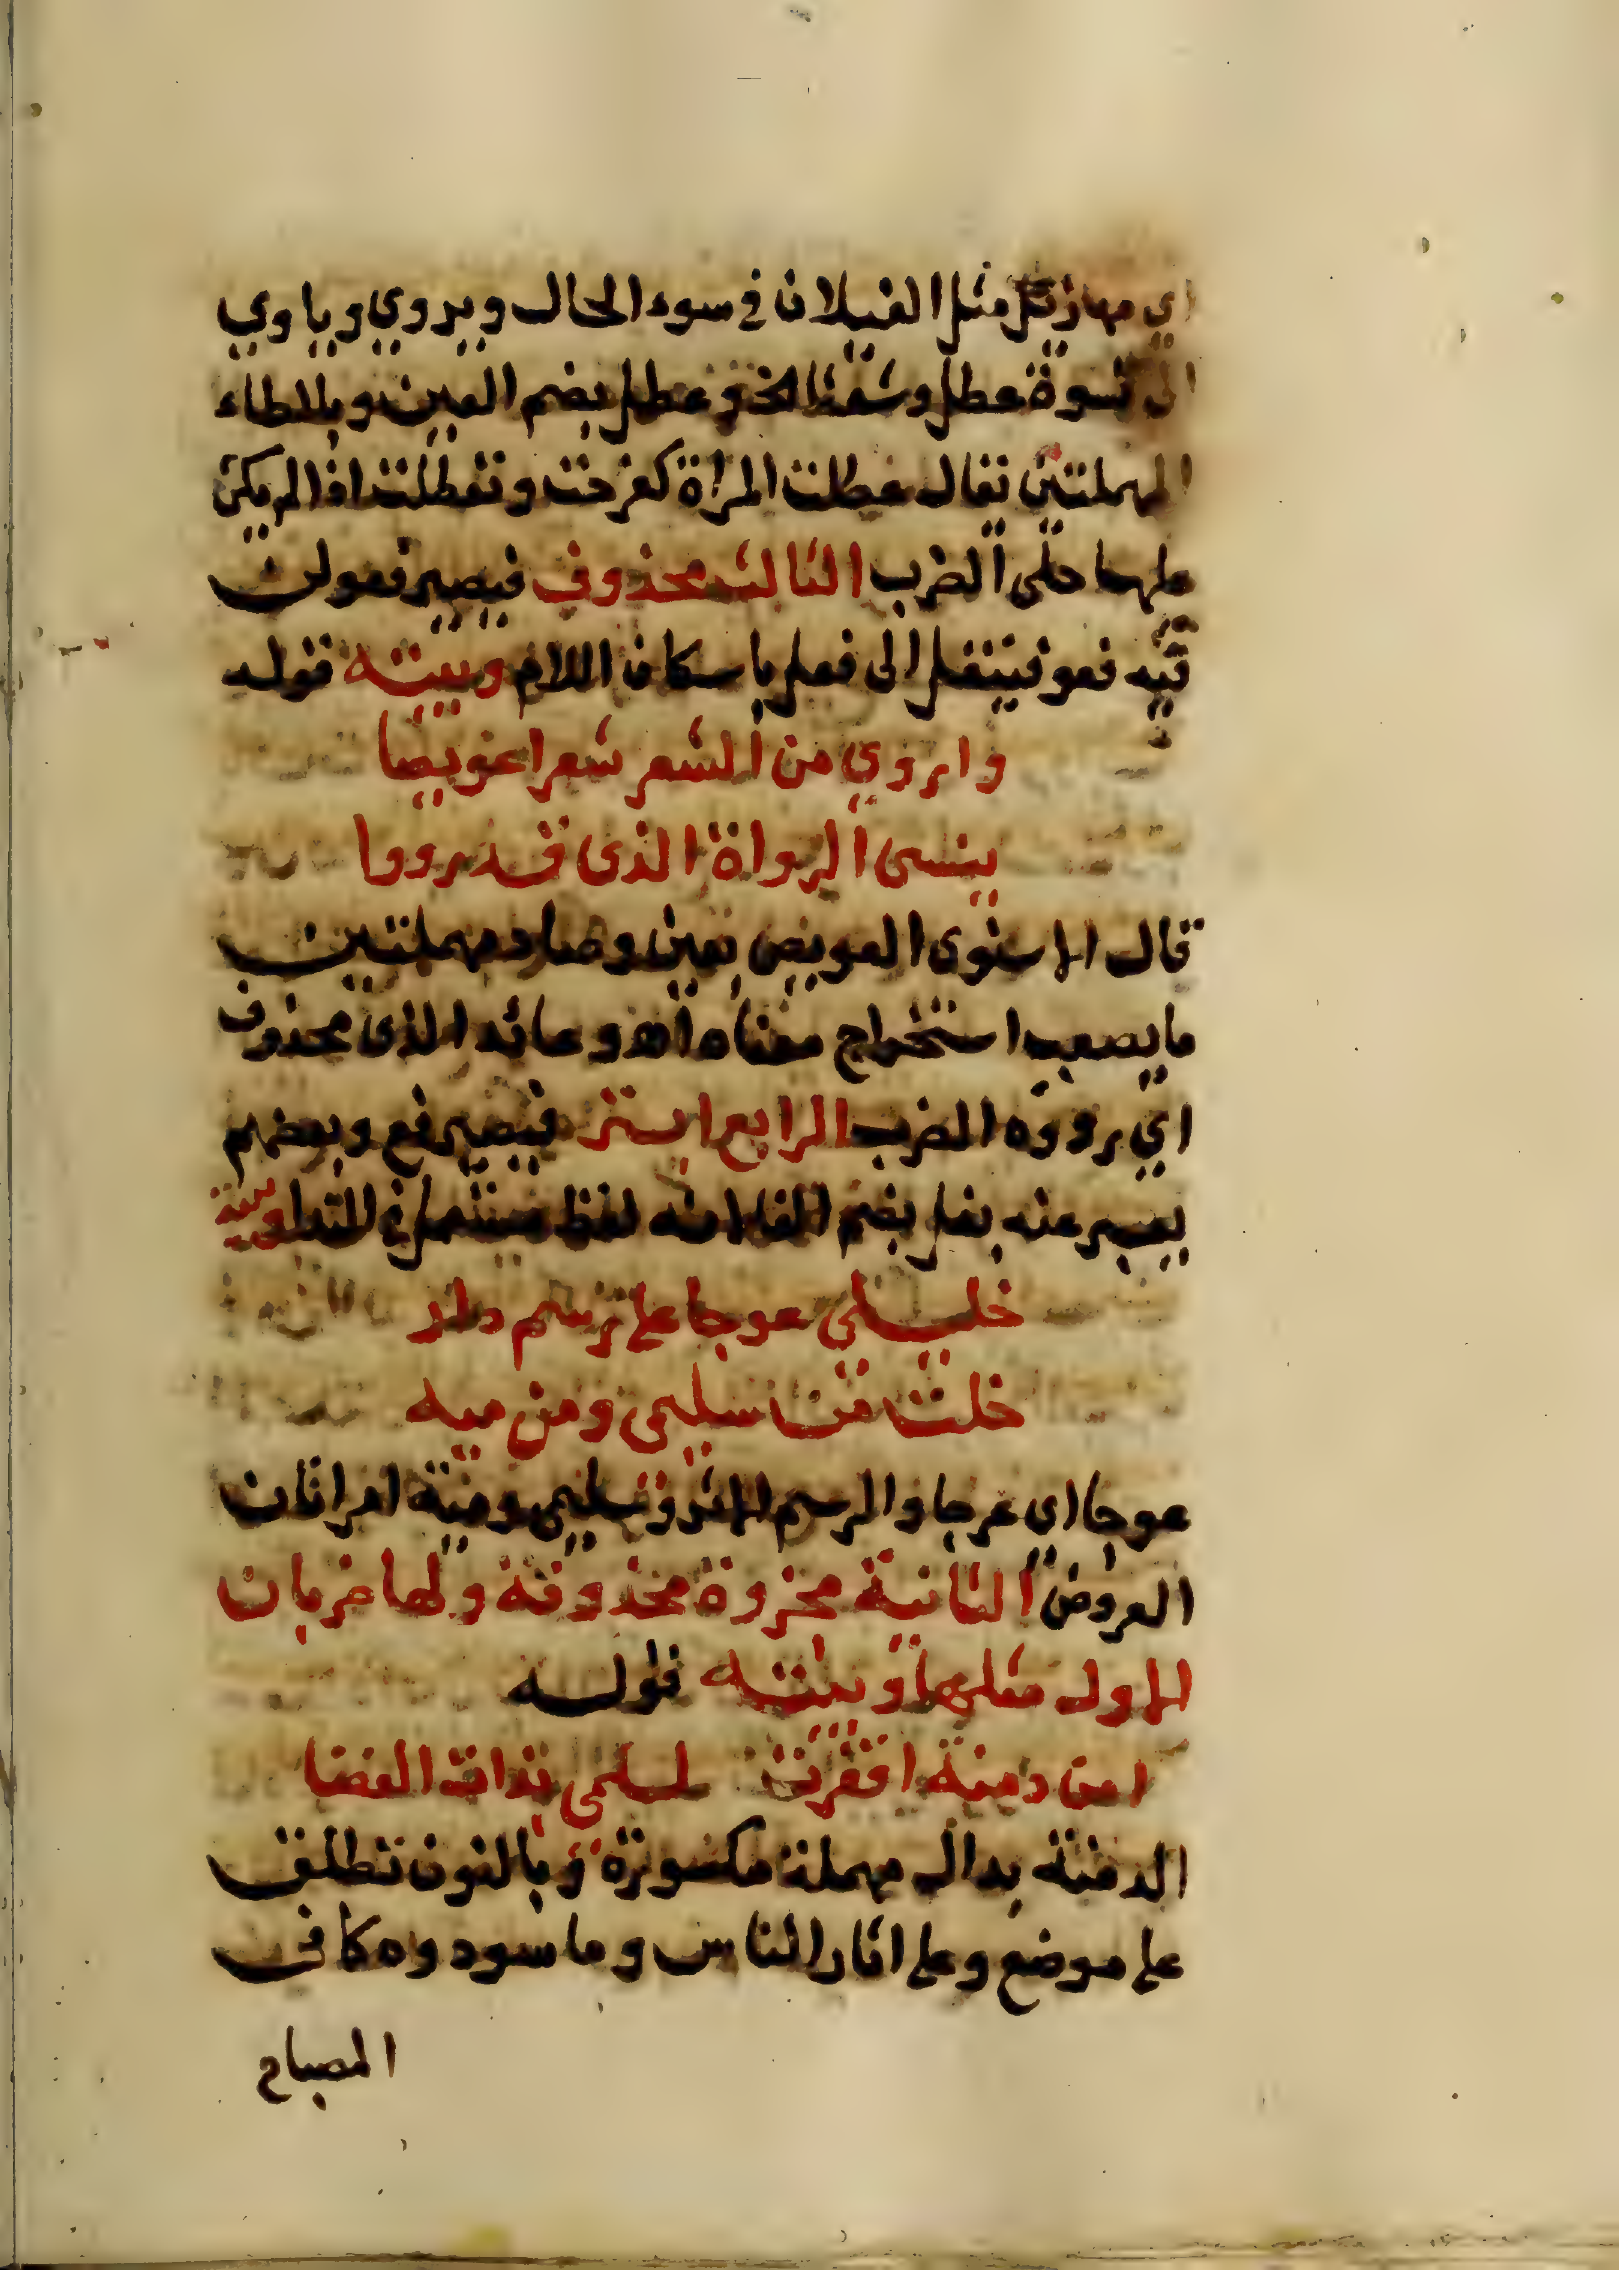 اي مهازيل مثل الغيلان في سوء الحال ويروي وياوي
الى نسوة عطل وشعثا الخ وعطل بضم العين وبالطاء
المهملتين يقال عطلت المراة كفرحت وتعطلت اذا لم يكن
عليها حلى الضرب الثالث محذوف فيصير فعولن
فيه فعو فينقل الى فعل باسكان اللام وبيته قوله
واروي من الشعر شعرا عويصا
ينسى الرواة الذى قد رووا
قال الاسنوى العويص بعين وصاد مهملتين
ما يصعب استخراج معناه اه وعائد الذى محذوف
اي رووه الضرب الرابع ابتر فيصير فع وبعضهم
يعبر عنه بفل بضم الفا لانه لفظ مستعمل في الندا وبيته
خليلى عوجا على رسم دار
خلت من سليمى ومن ميه
عوجا اي عرجا والرسم الاثر وسليمى ومية امراتان
العروض الثانية مجزوة محذوفة ولها ضربان
الاول مثلها وبيته قوله
امن دمنة اقفرت لسلمى بذات الغضا
الدمنة بدال مهملة مكسورة وبالنون تطلق
على موضع وعلى اثار الناس وما سودوه كما في
المصباح